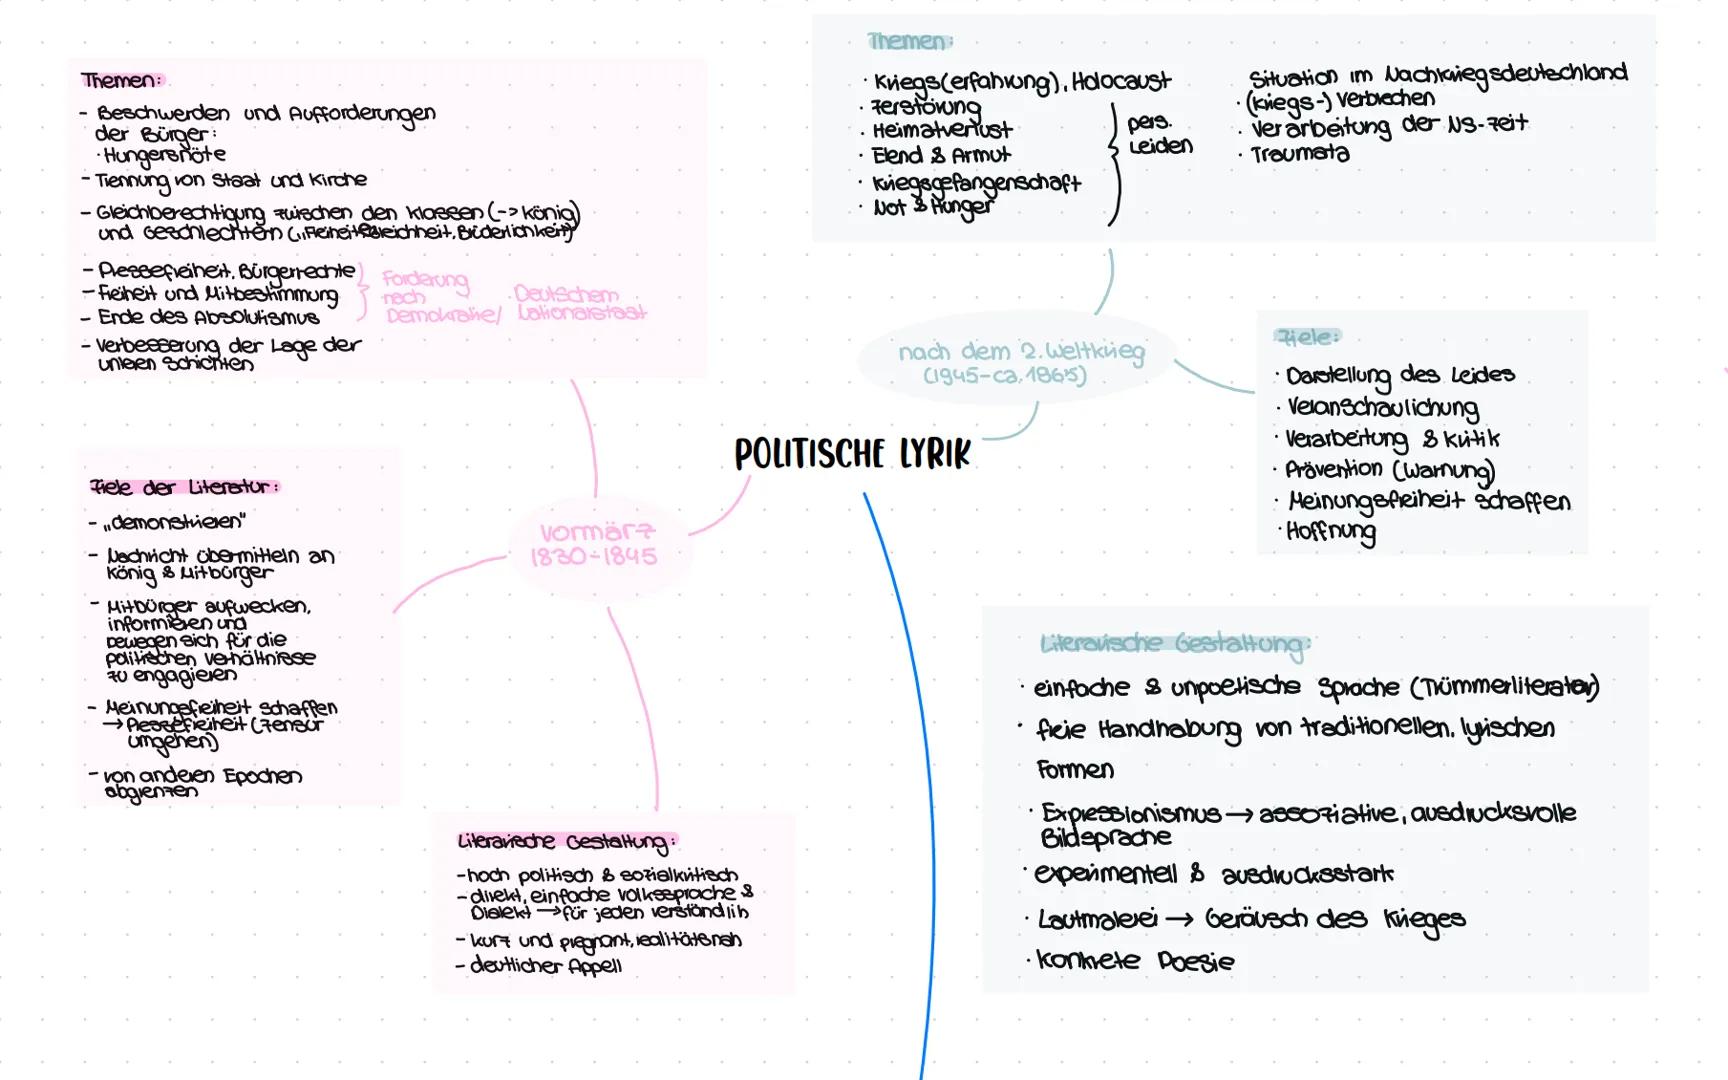 Themen:
- Beschwerden und Aufforderungen
der Bürger:
· Hungersnöte
- Trennung von Staat und Kirche
- Gleichberechtigung zwischen den Klassen (-> König)
und Geschlechtern („Freiheit, Gleichheit, Brüderlichkeit)
- Pressefreiheit, Bürgerrechte
- Freiheit und Mitbestimmung
- Ende des Absolutismus
Forderung
nach
Demokratie/
Deutschem
Nationalstaat
- Verbesserung der Lage der
unteren Schichten
Themen:
· Kriegs(erfahrung), Holocaust
· Zerstörung
· Heimatverlust
· Elend & Armut
· Kriegsgefangenschaft
· Not & Hunger
pers.
Leiden
Situation im Nachkriegsdeutschland
· (Kriegs-) Verbrechen
· Verarbeitung der NS-Zeit
· Traumata
nach dem 2. Weltkrieg
(1945-ca. 1865)
Ziele:
· Darstellung des Leides
· Veranschaulichung
· Verarbeitung & Kritik
· Prävention (Warnung)
· Meinungsfreiheit schaffen
· Hoffnung
POLITISCHE LYRIK
Vormärz
1830-1845
Ziele der Literatur:
- „demonstrieren"
- Nachricht übermitteln an
König & Mitbürger
- Mitbürger aufwecken,
informieren und
bewegen sich für die
politischen Verhältnisse
zu engagieren
- Meinungsfreiheit schaffen
→ Pressefreiheit (Zensur
umgehen)
- von anderen Epochen
abgrenzen
Literarische Gestaltung:
- hoch politisch & sozialkritisch
- direkt, einfache Volkssprache &
Dialekt → für jeden verständlih
- kurz und pregnant, realitätsnah
- deutlicher Appell
Literarische Gestaltung:
· einfache & unpoetische Sprache (Trümmerliteratur)
· freie Handhabung von traditionellen, lyrischen
Formen
· Expressionismus → assoziative, ausdrucksvolle
Bildsprache
· experimentell & ausdrucksstark
· Lautmalerei → Geräusch des Krieges
· konkrete Poesie